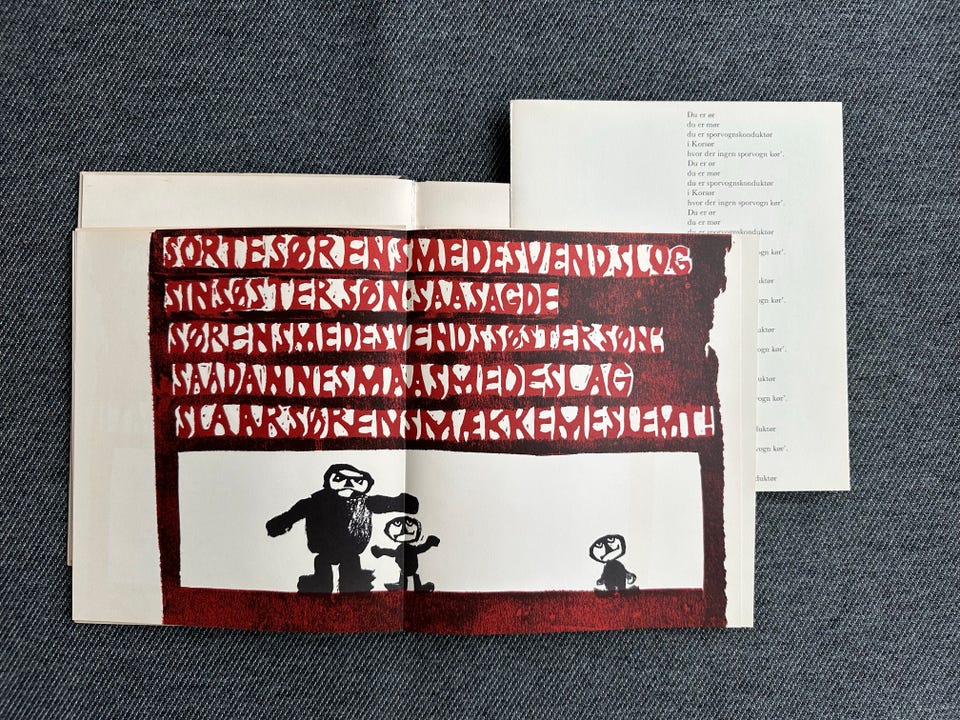 Du er ør
du er mør
du er sporvognskonduktør
i Korsør
hvor der ingen sporvogn kør'.
Du er ør
du er mør
du er sporvognskonduktør
i Korsør
hvor der ingen sporvogn kør'.
Du er ør
du er mør
du er sporvognskonduktør
kør'.
kør'.
kør'.
kør'.
kør'.
SORTESØRENSMEDESVENDSLOG
SINSØSTERSØN:SAASAGDE
SØRENSMEDESVENDSSØSTERSØN:
SAADANNESMAASMEDESLAG
SLAARSØRENSMÆKKEMESLEMT!